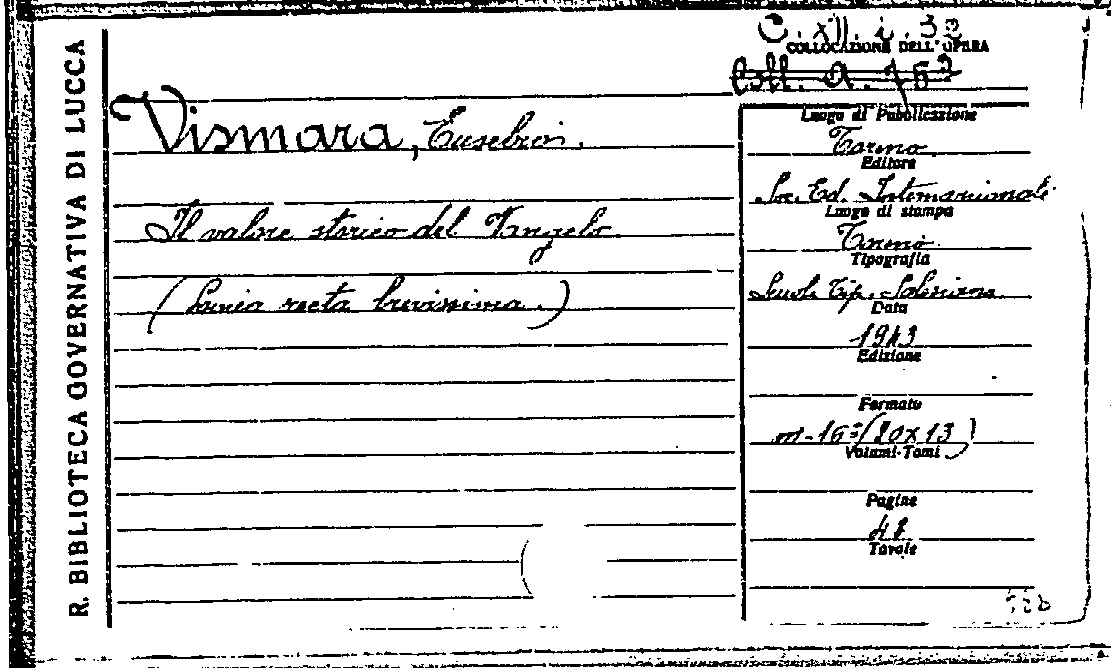 R. BIBLIOTECA GOVERNATIVA DI LUCCA
C. XII. i. 32
COLLOCAZIONE DELL'OPERA
Coll. A. 763
Vismara, Eusebio.
Il valore storico del Vangelo
(Linea recta brevissima.)
Luogo di Pubblicazione
Torino
Editore
Soc. Ed. Internazionale
Luogo di stampa
Torino
Tipografia
Scuola Tip. Salesiana
Data
1943
Edizione
Formato
in-16° (20x13)
Volumi-Tomi
Pagine
48
Tavole